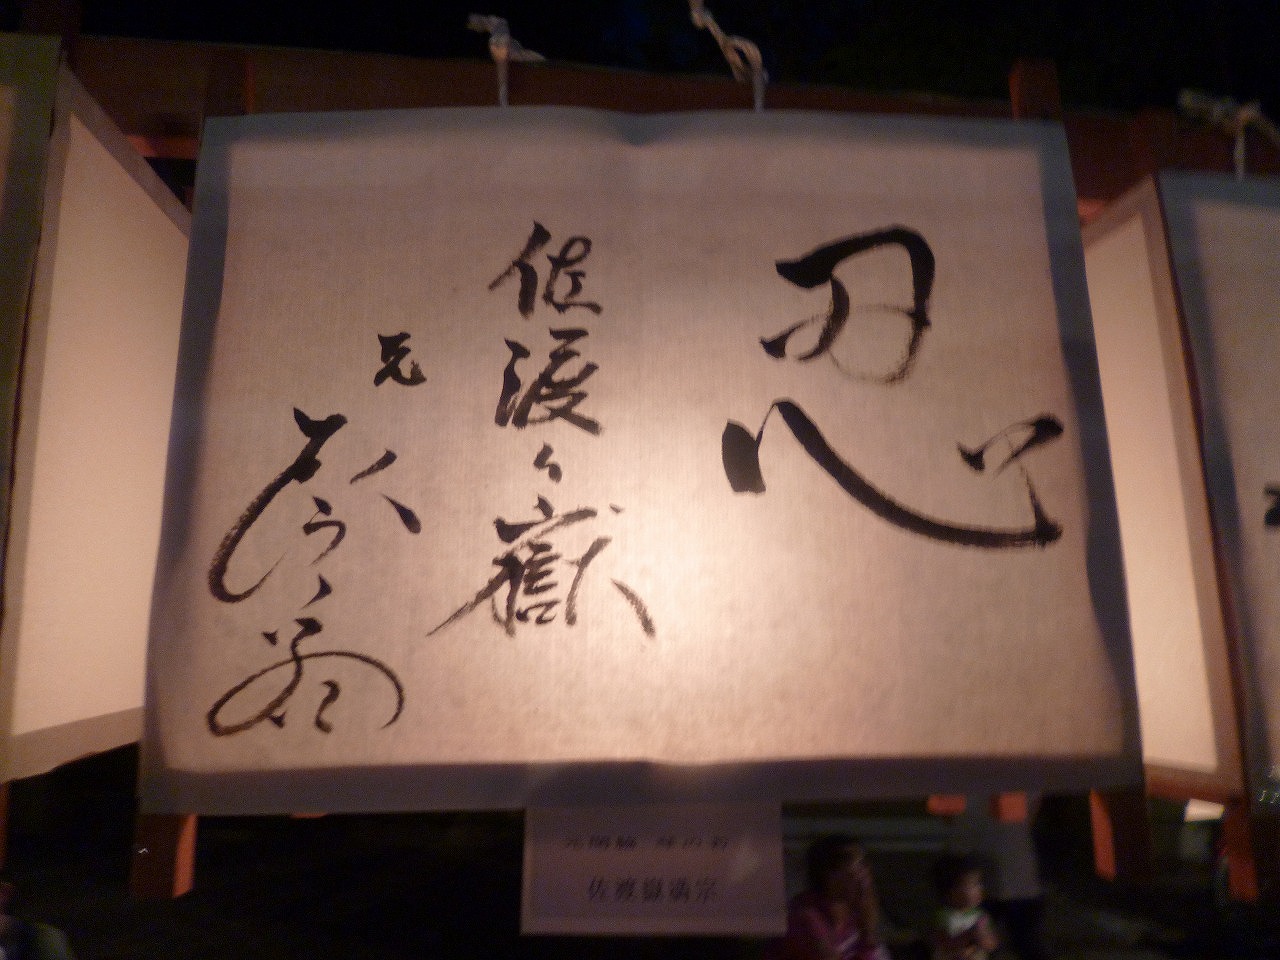 忍
佐渡ヶ嶽
元琴の若
元関脇 琴の若
佐渡嶽満宗